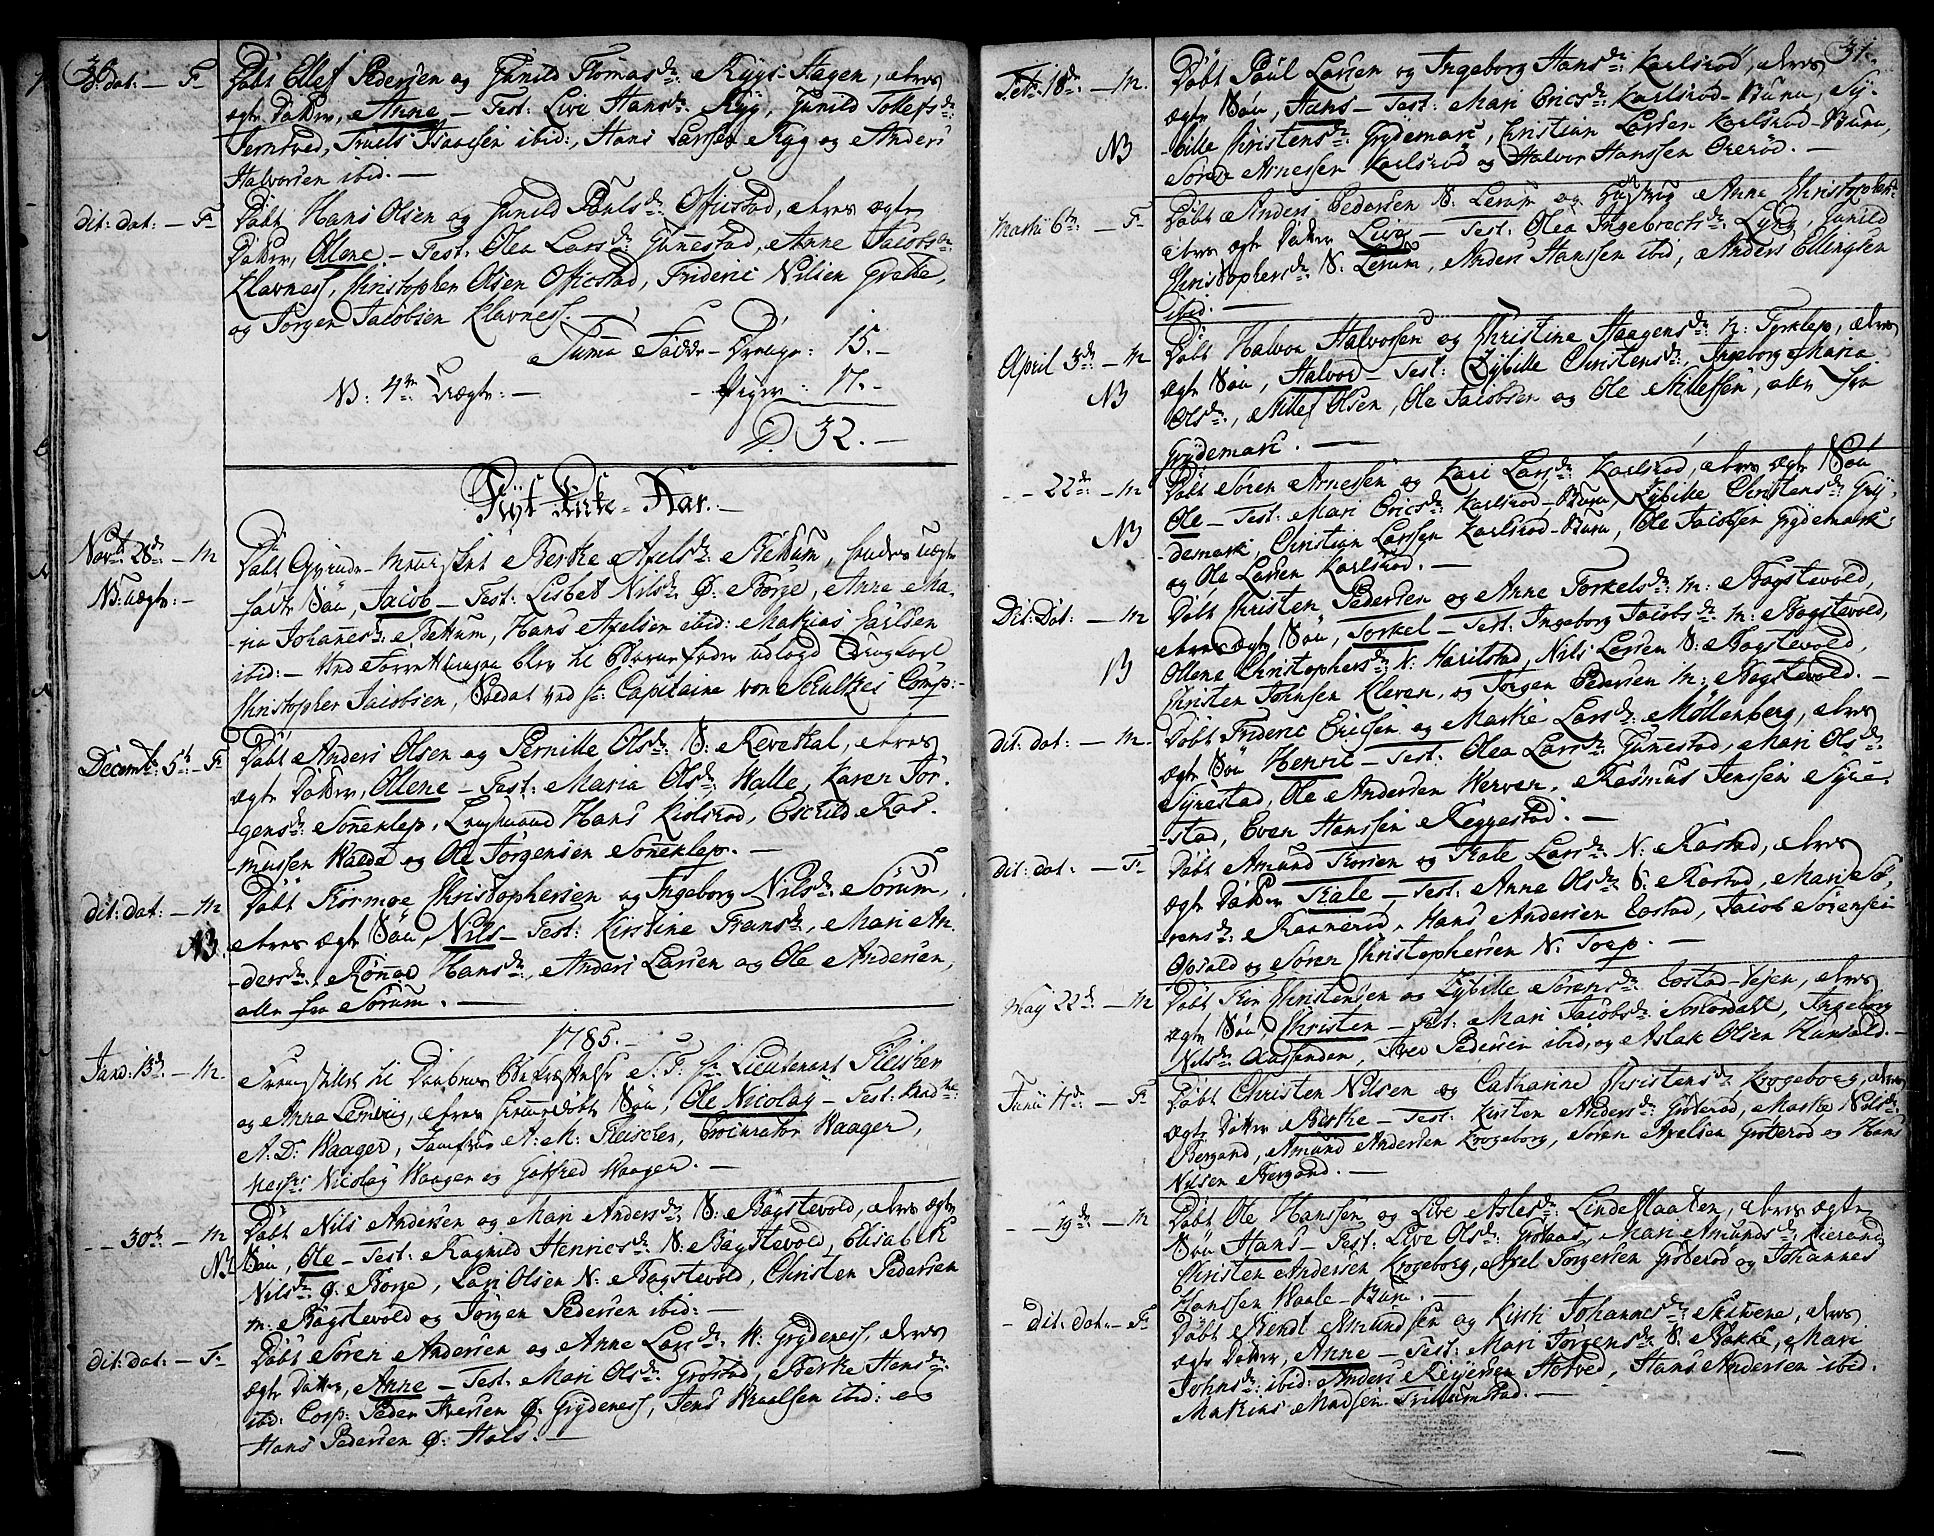 dat: — F Døbt Ellef Pedersen og Gunild Thomasdr: Rygs-Hagen, deres
ægte Datter, Anne — Test: Live Hansdr: Ryg, Gunild Tollefsdr:
Jerntved, Truels Isaacsen ibid:, Hans Larsen Ryg og Anders
Halvorsen ibid. —
dit: dat: — F Døbt Hans Olsen og Gunild Paulsdr: Offiestad, deres ægte
Datter, Ollene. — Test: Olea Larsdr: Gunnestad, Anne Jacobsdr:
Klavness, Christopher Olsen Offiestad, Frideric Nilsen
og Jørgen Jacobsen Klavness. —
Summa Fødde — Drenge: 15. —
NB: 4re Uægte: — — Piger: 17. —
32. —
Nyt Kirke-Aar. —
Novbr 28de — M Døbt Qvinde-Mennisket Berthe Axelsdr: hendes uægte
NB: uægte: — fødte Søn, Jacob — Test: Lisbet Nilsdr: Ø: Borge, Anne Ma-
ria Johannesdr: Hans Axelsen ibid: Mathias
ibid: — til Barnefader udlagd Ungkarl
Christopher Jacobsen, Soldat ved Hr: Capitaine von Schultzes Comp: —
Decembr: 5te — F Døbt Anders Olsen og Pernille Olsdr: S: Revetal, deres
ægte Datter, Ollene — Test: Maria Olsdr: Walle, Karen Jør-
gensdr: Sonneklep, Hans Kiolsrød, Eschild Ras-
mussen og Ole Jørgensen Sonneklep. —
dit: dat: — M Døbt Thormoe Christophersen og Ingeborg Nilsdr: Sørum,
NB. deres ægte Søn, Nils — Test: Kirstine Fransdr:, Mari An-
dersdr:, Rønnoe Hansdr:, Anders Larsen og Ole Andersen,
alle fra Sørum. —
1785. —
Janv: 13de — M Fremstillet til Daabens Bekræftelse S. T. Hr Lieutenant Fleischer
og Anna Lemvig, deres hiemmedøbte Søn, Ole Nicolay — Test:
A. D: Waager, Jomfrue A: M: Fleischer, Procurator Waager,
Messrs Nicolay Waager og Gotfred Waager. —
— 30te — M Døbt Nils Andersen og Mari Andersdr: S: Bagstevold, deres ægte
NB Søn, Ole — Test: Ragnild Henricsdr: S: Bagstevold, Elisabeth
Nilsdr: Ø: Borge, Lars Olsen N: Bagstevold, Christen Pedersen
M: Bagstevold og Jørgen Pedersen ibid: —
dit: dat: — F Døbt Søren Andersen og Anne Larsdr: W: Grydeness, deres
ægte Datter, Anne — Test: Mari Olsdr: Grøstad, Berthe Hansdr:
ibid: Corp: Peder Iversen Ø: Grydeness, Jens Knuelsen ibid: og
Hans Pedersen Ø: Hals. —
37.
Feb: 18de — M. Døbt Paul Larsen og Ingeborg Hansdr: Karlsrød, deres
ægte Søn, Hans — Test: Mari Ericsdr: Karlsrød-Buru, Sy-
NB bille Christensdr: Grydemark, Christian Larsen Karlsrød-Buru,
Søren Arnessen Karlsrød og Halvor Hanssen Orerød. —
Martii 6te — F Døbt Anders Pedersen S: Lerum og Hustrue Anne Christophersdr:
deres ægte Datter Live — Test: Olea Ingebrectsdr: Gunild
Christophersdr: S: Lerum, Anders Hanssen ibid, Anders Ellingsen
ibid: —
April 3de — M Døbt Halvor Halvorsen og Christine Haagensdr: N: Tyrklep, deres
NB ægte Søn, Halvor — Test: Zybille Christensdr:, Ingeborg Maria
Olsdr:, Millef Olsen, Ole Jacobsen og Ole Millessen, alle fra
Grydemark. —
— 22de — M Døbt Søren Arnessen og Kari Larsdr: Karlsrød, deres ægte Søn
Ole — Test: Mari Ericsdr: Karlsrød-Buru, Zybille Christensdr: Gry-
NB demark, Christian Larsen Karlsrød-Buru, Ole Jacobsen Grydemark
og Ole Larsen Karlsrød. —
Dit: Dat: — M Døbt Christen Pedersen og Anne Torkelsdr: M: Bagstevold,
deres ægte Søn, Torkel — Test: Ingeborg Jacobsdr: M: Bagstevold,
NB Ollene Christophersdr: N: Harilstad, Nils Larsen S: Bagstevold,
Christen Johnsen Kleven, og Jørgen Pedersen M: Bagstevold. —
dit: dat: — M. Døbt Frideric Ericsen og Marthe Larsdr: Møllenberg, deres
ægte Søn Henric — Test: Olea Larsdr: Gunnestad, Mari Olsdr:
Syrestad, Ole Andersen Werven, Rasmus Jenssen Syre-
stad, Even Hanssen Reggestad. —
dit: dat: — F Døbt Amund Thorsen og Thale Larsdr: N: Rastad, deres
ægte Datter Thale — Test: Anne Olsdr: S: Rastad, Mari Sø-
rensdr: Rannerød, Hans Andersen Eostad, Jacob Sørensen
Opsald og Søren Christophersen N: Torp. —
May 22de — M Døbt Thor Christensen og Zybille Sørensdr: Eostad-Eejen, deres
ægte Søn, Christen — Test: Mari Jacobsdr: Ingeborg
Nilsdr: Aassenden, Iver Pedersen ibid, og Aslak Olsen Hunsald. —
Junii 11de — F Døbt Christen Nilsen og Catharine Christensdr: Krogeborg, deres
ægte Datter Berthe — Test: Kirsten Andersdr: Grøterød, Marthe Nilsdr:
Bergand, Amund Andersen Krogeborg, Søren Axelsen Grøterød og Hans
Nilsen Bergand. —
— 19de — M Døbt Ole Hanssen og Live Aslesdr: Lindeflaaten, deres ægte
Søn Hans — Test: Live Olsdr: Grøtaas, Mari Amundsdr: Bierand,
Christen Andersen Krogeborg, Axel Torgersen Grøterød og Johannes
Hanssen Waale-Buru. —
— dit: dat: — F Døbt Bendt Amundsen og Kirsti Johannesdr: Skivene, deres
ægte Datter, Anne — Test: Mari Jørgensdr: S: Bakke, Mari
Johnsdr: ibid: Anders Reiersen Hotved, Hans Andersen ibid.
Mathias Madsen —